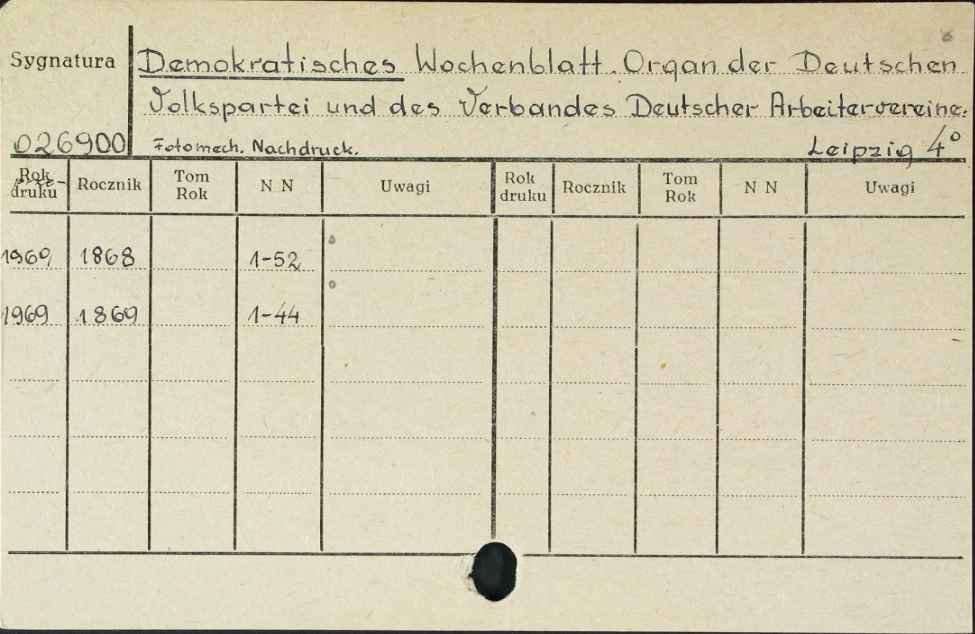 6
Sygnatura Demokratisches Wochenblatt. Organ der Deutschen
Volkspartei und des Verbandes Deutscher Arbeitervereine.
026900 Fotomech. Nachdruck. Leipzig 4°
Rok druku Rocznik Tom Rok N N Uwagi Rok druku Rocznik Tom Rok N N Uwagi
1969 1868 1-52
1969 1869 1-44